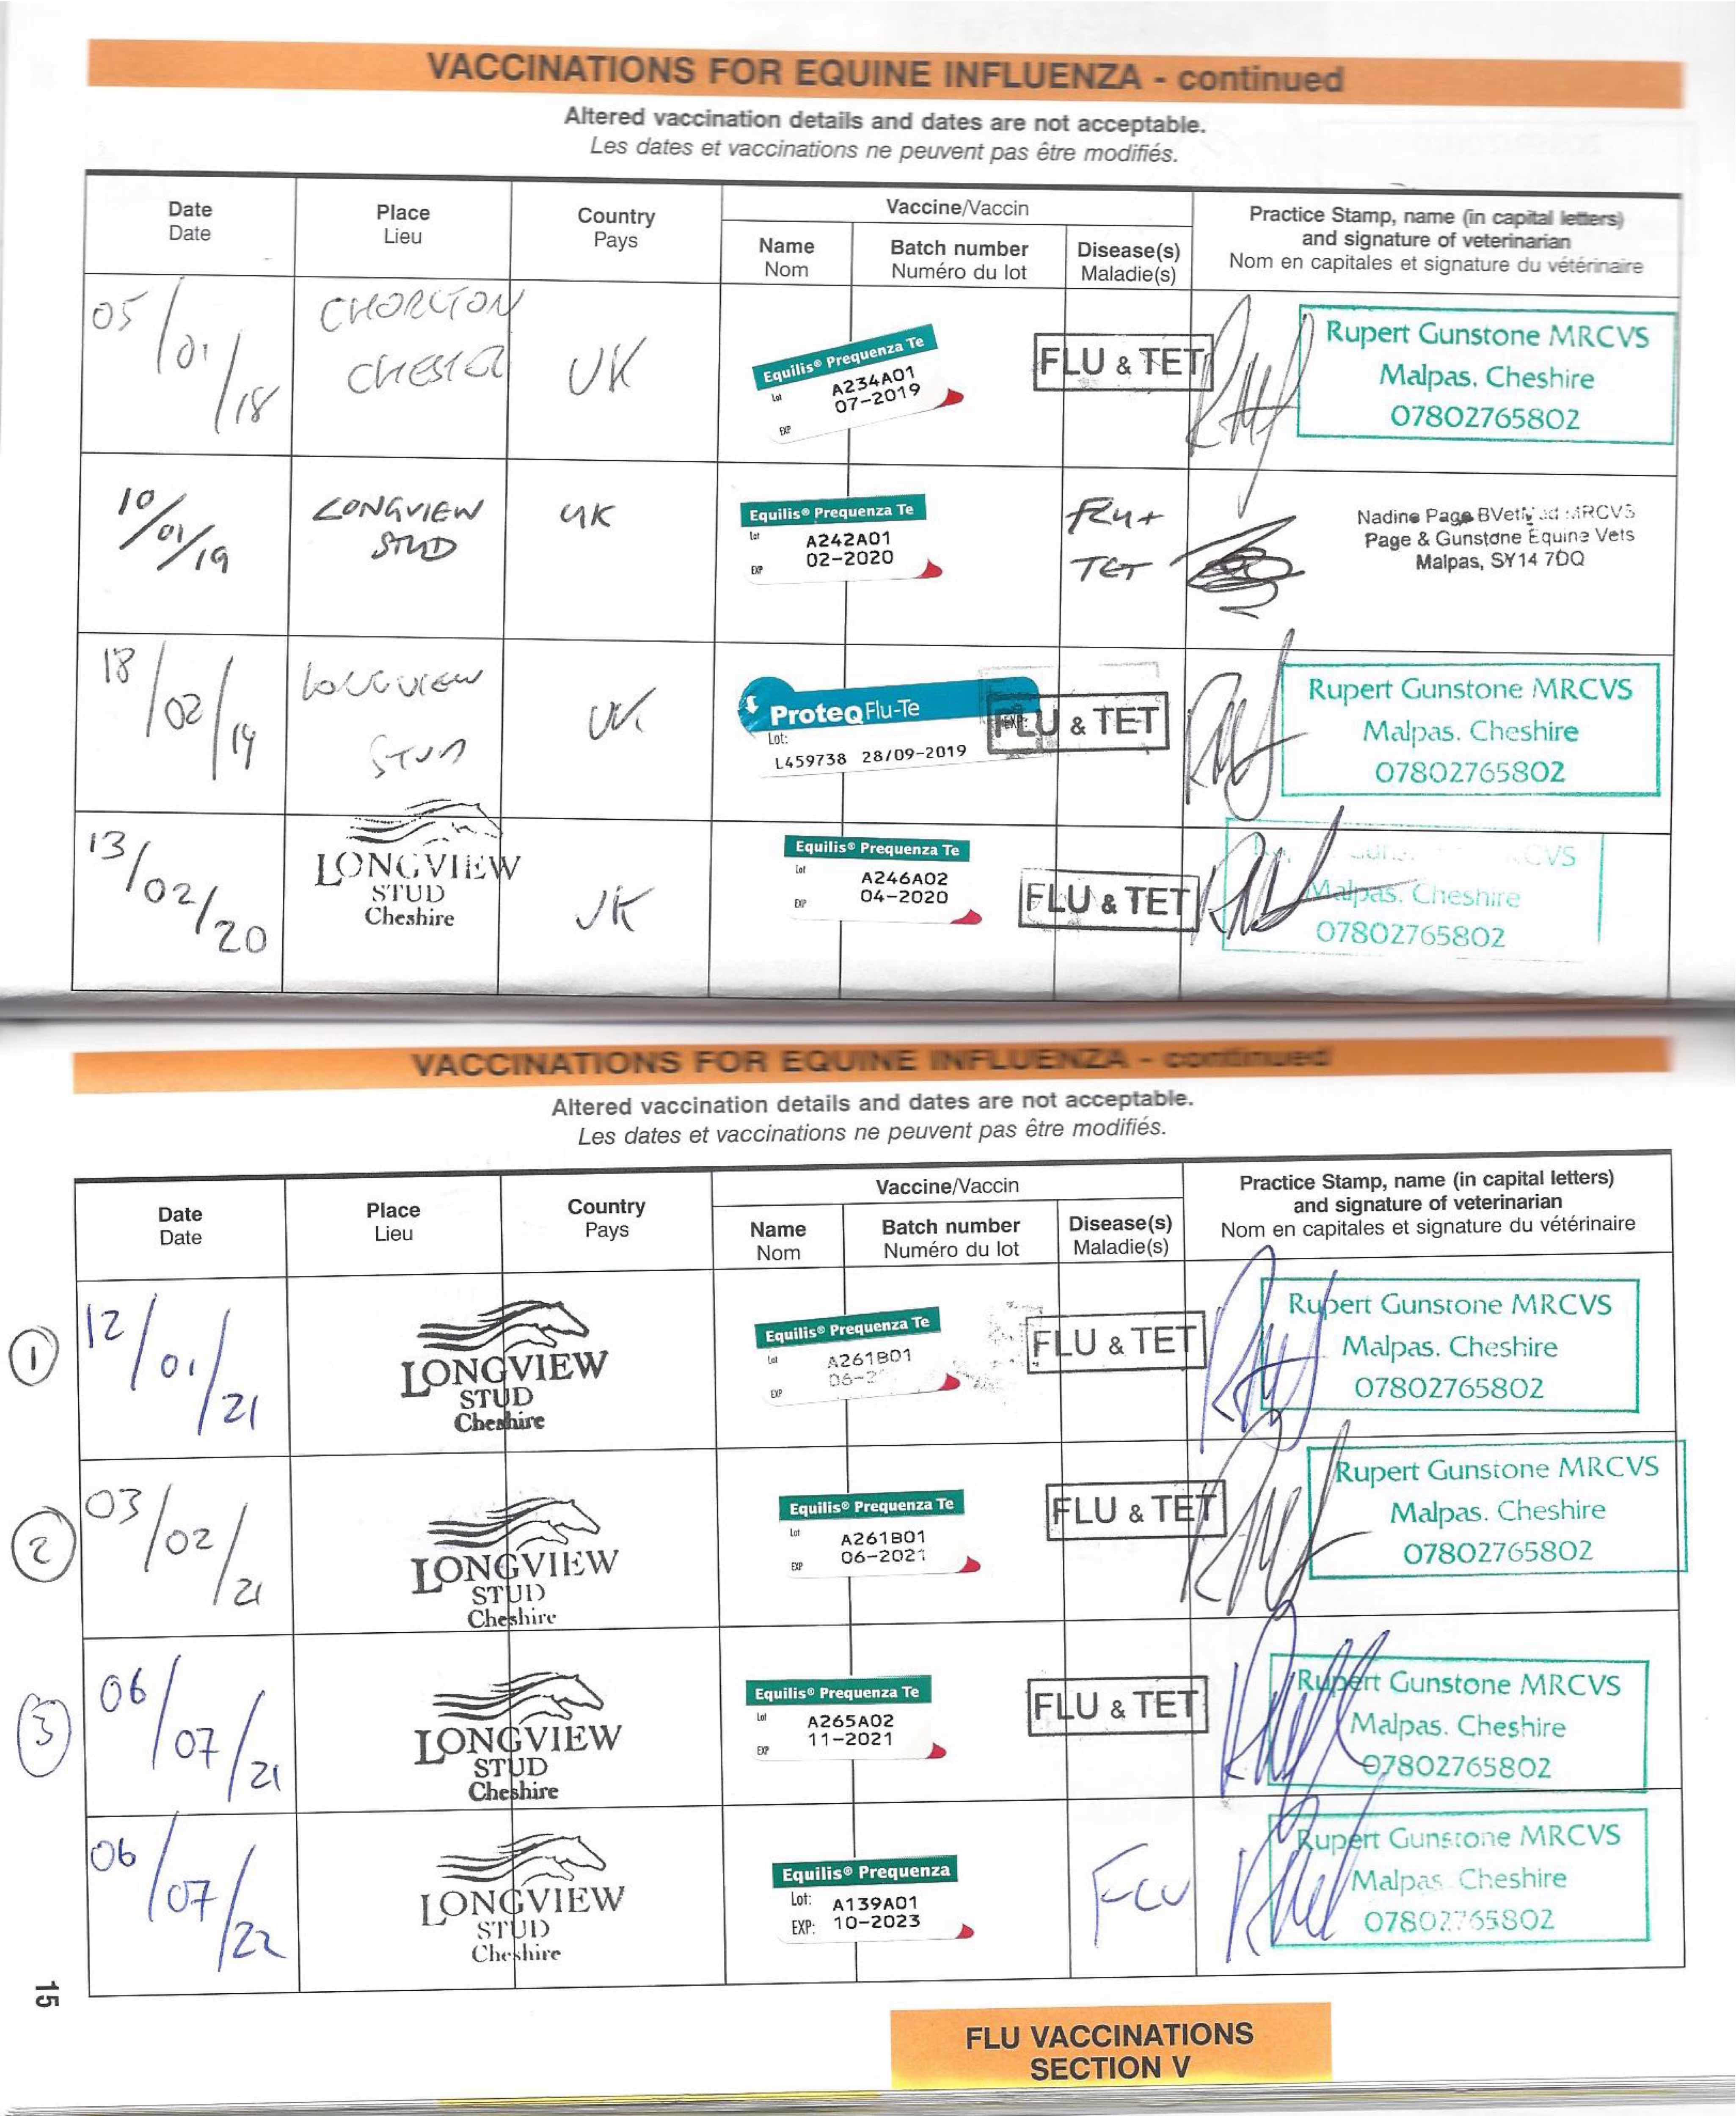 VACCINATIONS FOR EQUINE INFLUENZA - continued
Altered vaccination details and dates are not acceptable.
Les dates et vaccinations ne peuvent pas être modifiés.
Date
Date
Place
Lieu
Country
Pays
Vaccine/Vaccin
Name
Nom
Batch number
Numéro du lot
Disease(s)
Maladie(s)
Practice Stamp, name (in capital letters)
and signature of veterinarian
Nom en capitales et signature du vétérinaire
05/01/18
CHORLTON
CHESTER
UK
Equilis® Prequenza Te
Lot A234A01
07-2019
EXP
FLU & TET
Rupert Gunstone MRCVS
Malpas. Cheshire
07802765802
10/01/19
LONGVIEW
STUD
UK
Equilis® Prequenza Te
Lot A242A01
EXP 02-2020
FLU +
TET
Nadine Page BVetMed MRCVS
Page & Gunstone Equine Vets
Malpas, SY14 7DQ
18/02/19
LONGVIEW
STUD
UK
ProteqFlu-Te
Lot: EXP:
L459738 28/09-2019
FLU & TET
Rupert Gunstone MRCVS
Malpas. Cheshire
07802765802
13/02/20
LONGVIEW
STUD
Cheshire
UK
Equilis® Prequenza Te
Lot A246A02
EXP 04-2020
FLU & TET
Malpas. Cheshire
07802765802
VACCINATIONS FOR EQUINE INFLUENZA - continued
Altered vaccination details and dates are not acceptable.
Les dates et vaccinations ne peuvent pas être modifiés.
Date
Date
Place
Lieu
Country
Pays
Vaccine/Vaccin
Name
Nom
Batch number
Numéro du lot
Disease(s)
Maladie(s)
Practice Stamp, name (in capital letters)
and signature of veterinarian
Nom en capitales et signature du vétérinaire
1
12/01/21
LONGVIEW
STUD
Cheshire
Equilis® Prequenza Te
Lot A261B01
EXP
FLU & TET
Rupert Gunstone MRCVS
Malpas. Cheshire
07802765802
2
03/02/21
LONGVIEW
STUD
Cheshire
Equilis® Prequenza Te
Lot A261B01
EXP 06-2021
FLU & TET
Rupert Gunstone MRCVS
Malpas. Cheshire
07802765802
3
06/07/21
LONGVIEW
STUD
Cheshire
Equilis® Prequenza Te
Lot A265A02
EXP 11-2021
FLU & TET
Rupert Gunstone MRCVS
Malpas. Cheshire
07802765802
06/07/22
LONGVIEW
STUD
Cheshire
Equilis® Prequenza
Lot: A139A01
EXP: 10-2023
FLU
Rupert Gunstone MRCVS
Malpas Cheshire
07802765802
15
FLU VACCINATIONS
SECTION V